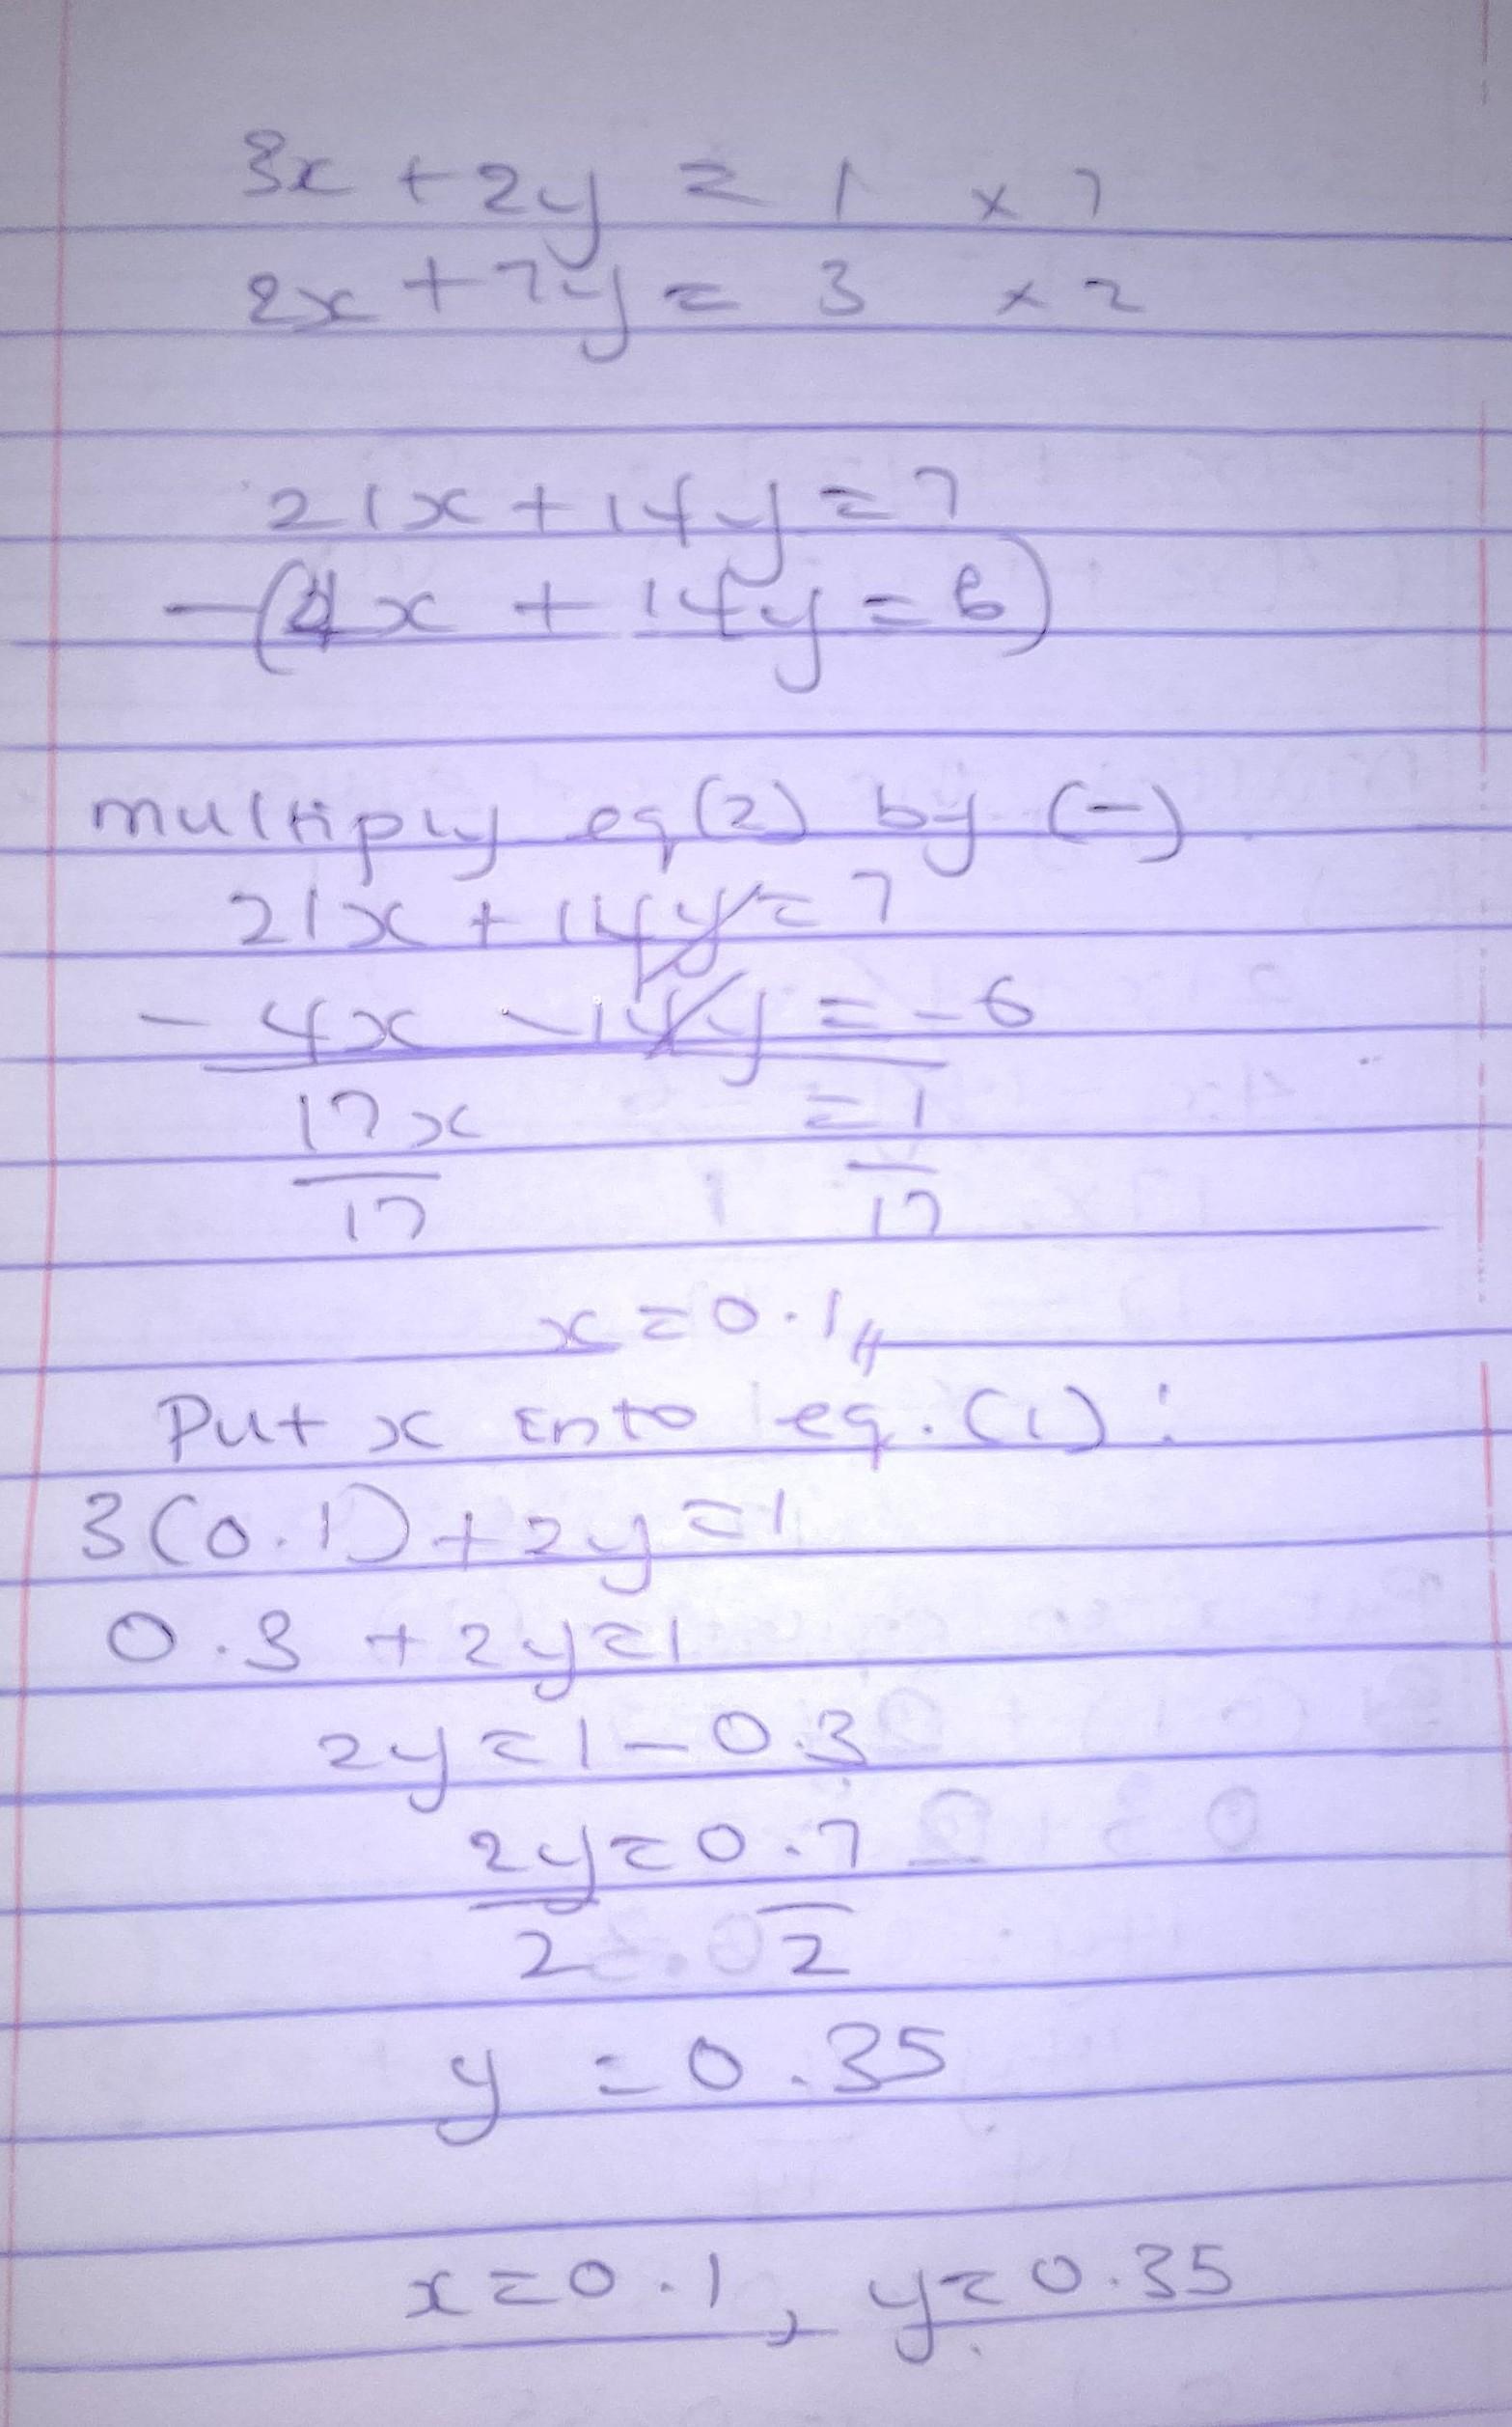 3x + 2y = 1 × 7
2x + 7y = 3 × 2
21x + 14y = 7
-(4x + 14y = 6)
multiply eq(2) by (-)
21x + 14y = 7
- 4x - 14y = - 6
17x = 1
17 17
x = 0.1
Put x into eq. (1) :
3(0.1) + 2y = 1
0.3 + 2y = 1
2y = 1 - 0.3
2y = 0.7
2 2
y = 0.35
x = 0.1, y = 0.35